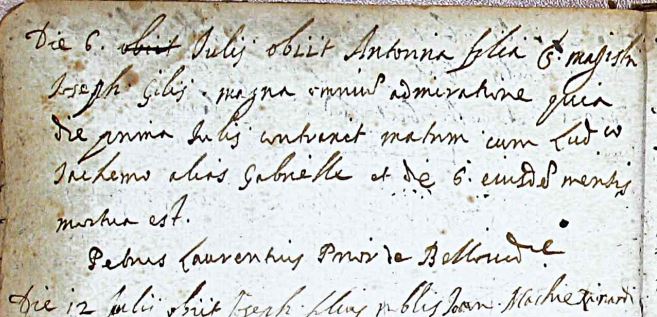 Die 6. obiit Julij obiit Antonia filia q. magistri
Joseph Gilij magna omniũ admiratione quia
die prima Julij contraxit matrm cum Ludco
Jachemo alias Gabrielle et die 6. eiusdẽ mensis
mortua est.
Petrus Laurentius Prior de
Die 12 Julii obiit Joseph filius Joan